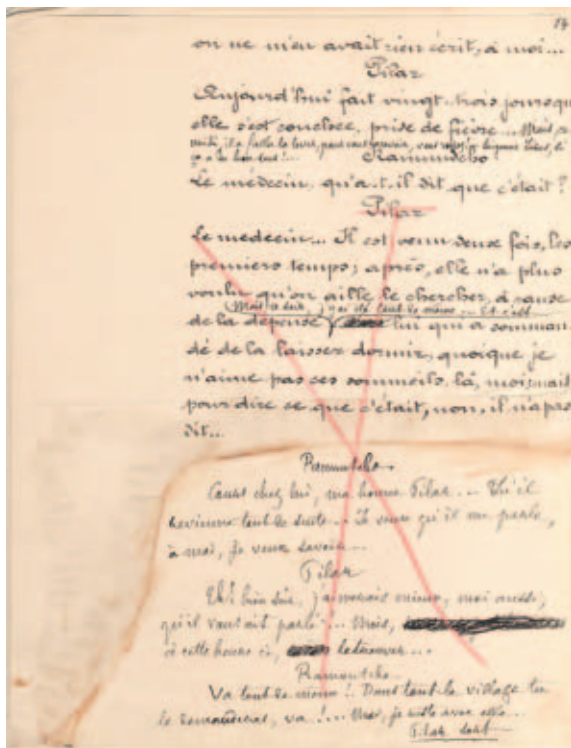 14
on ne m'en avait rien écrit, à moi...
Pilar
Aujourd'hui fait vingt-trois jours qu
elle s'est couchée, prise de fièvre... Mais, a
Ramuntcho
Le médecin, qu'a-t-il dit que c'était ?
Pilar
Le médecin... Il est venu deux fois, les
premiers temps ; après, elle n'a plus
voulu qu'on aille le chercher, à cause
(Mais ce soir, j'y ai été tout de même... Et c'est
de la dépense) lui qui a comman
dé de la laisser dormir, quoique je
n'aime pas ces sommeils-là, moi, mais
pour dire ce que c'était, non, il n'a pas
dit...
Ramuntcho.
Cours chez lui, ma bonne Pilar... Qu'il
revienne tout de suite... Je veux qu'il me parle,
à moi, je veux savoir...
Pilar
Eh ! bien sûr, j'aimerais mieux, moi aussi,
qu'il vous ait parlé... Mais,
à cette heure-ci, le trouver...
Ramuntcho
Va tout de même ! Dans tout le village tu
le demanderas, va !... Moi, je reste avec elle...
Pilar sort